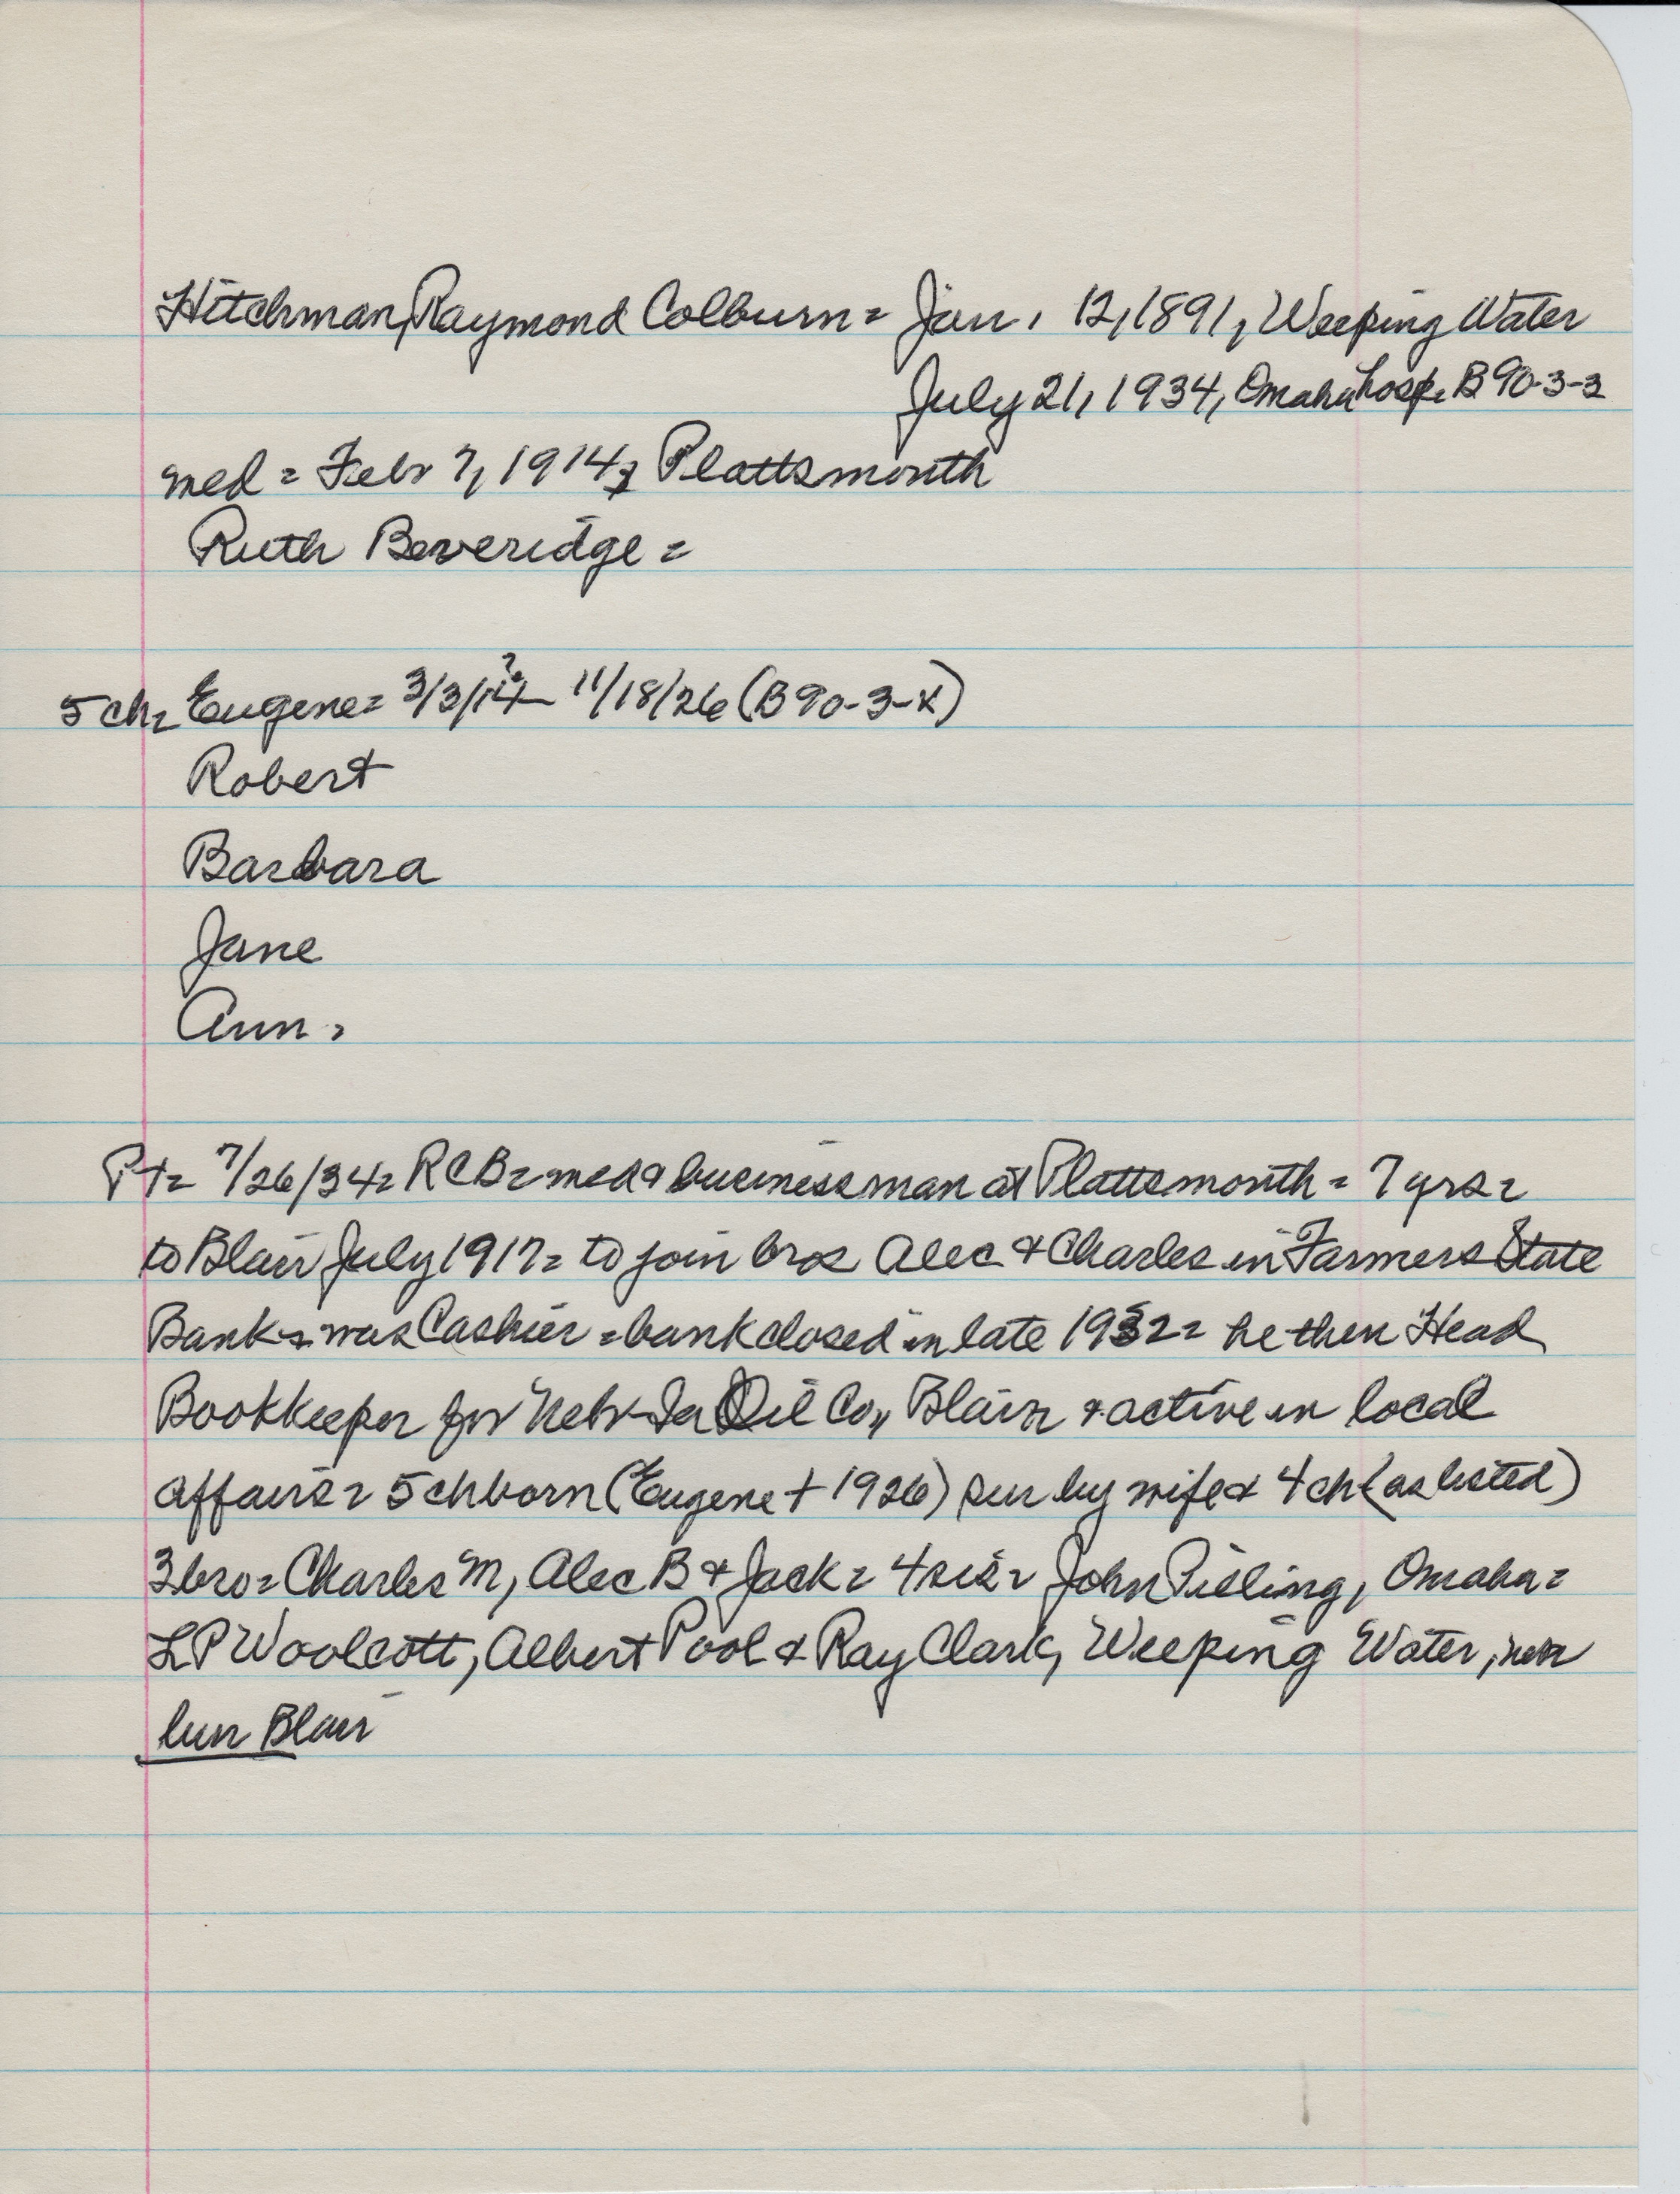 Hitchman, Raymond Colburn = Jan. 12, 1891, Weeping Water
July 21, 1934, Omaha hosp. B 90-3-3
med = Febr 7, 1914, Plattsmouth
Ruth Beveridge =
5 ch = Eugene = 3/3/14? - 11/18/26 (B 90-3-X)
Robert
Barbara
Jane
Ann =
Pt = 7/26/34 = RCB = med & businessman at Plattsmouth = 7 yrs =
to Blair July 1917 = to join bros Alec & Charles in Farmers State
Bank = was Cashier = bank closed in late 1932 = he then Head
Bookkeeper for Nebr-Ia Oil Co., Blair & active in local
affairs = 5 ch born (Eugene + 1926) sur by wife & 4 ch (as listed)
3 bro = Charles M, Alec B & Jack = 4 sis = John Pieling, Omaha =
LP Woolcott, Albert Pool & Ray Clark, Weeping Water,
bur Blair